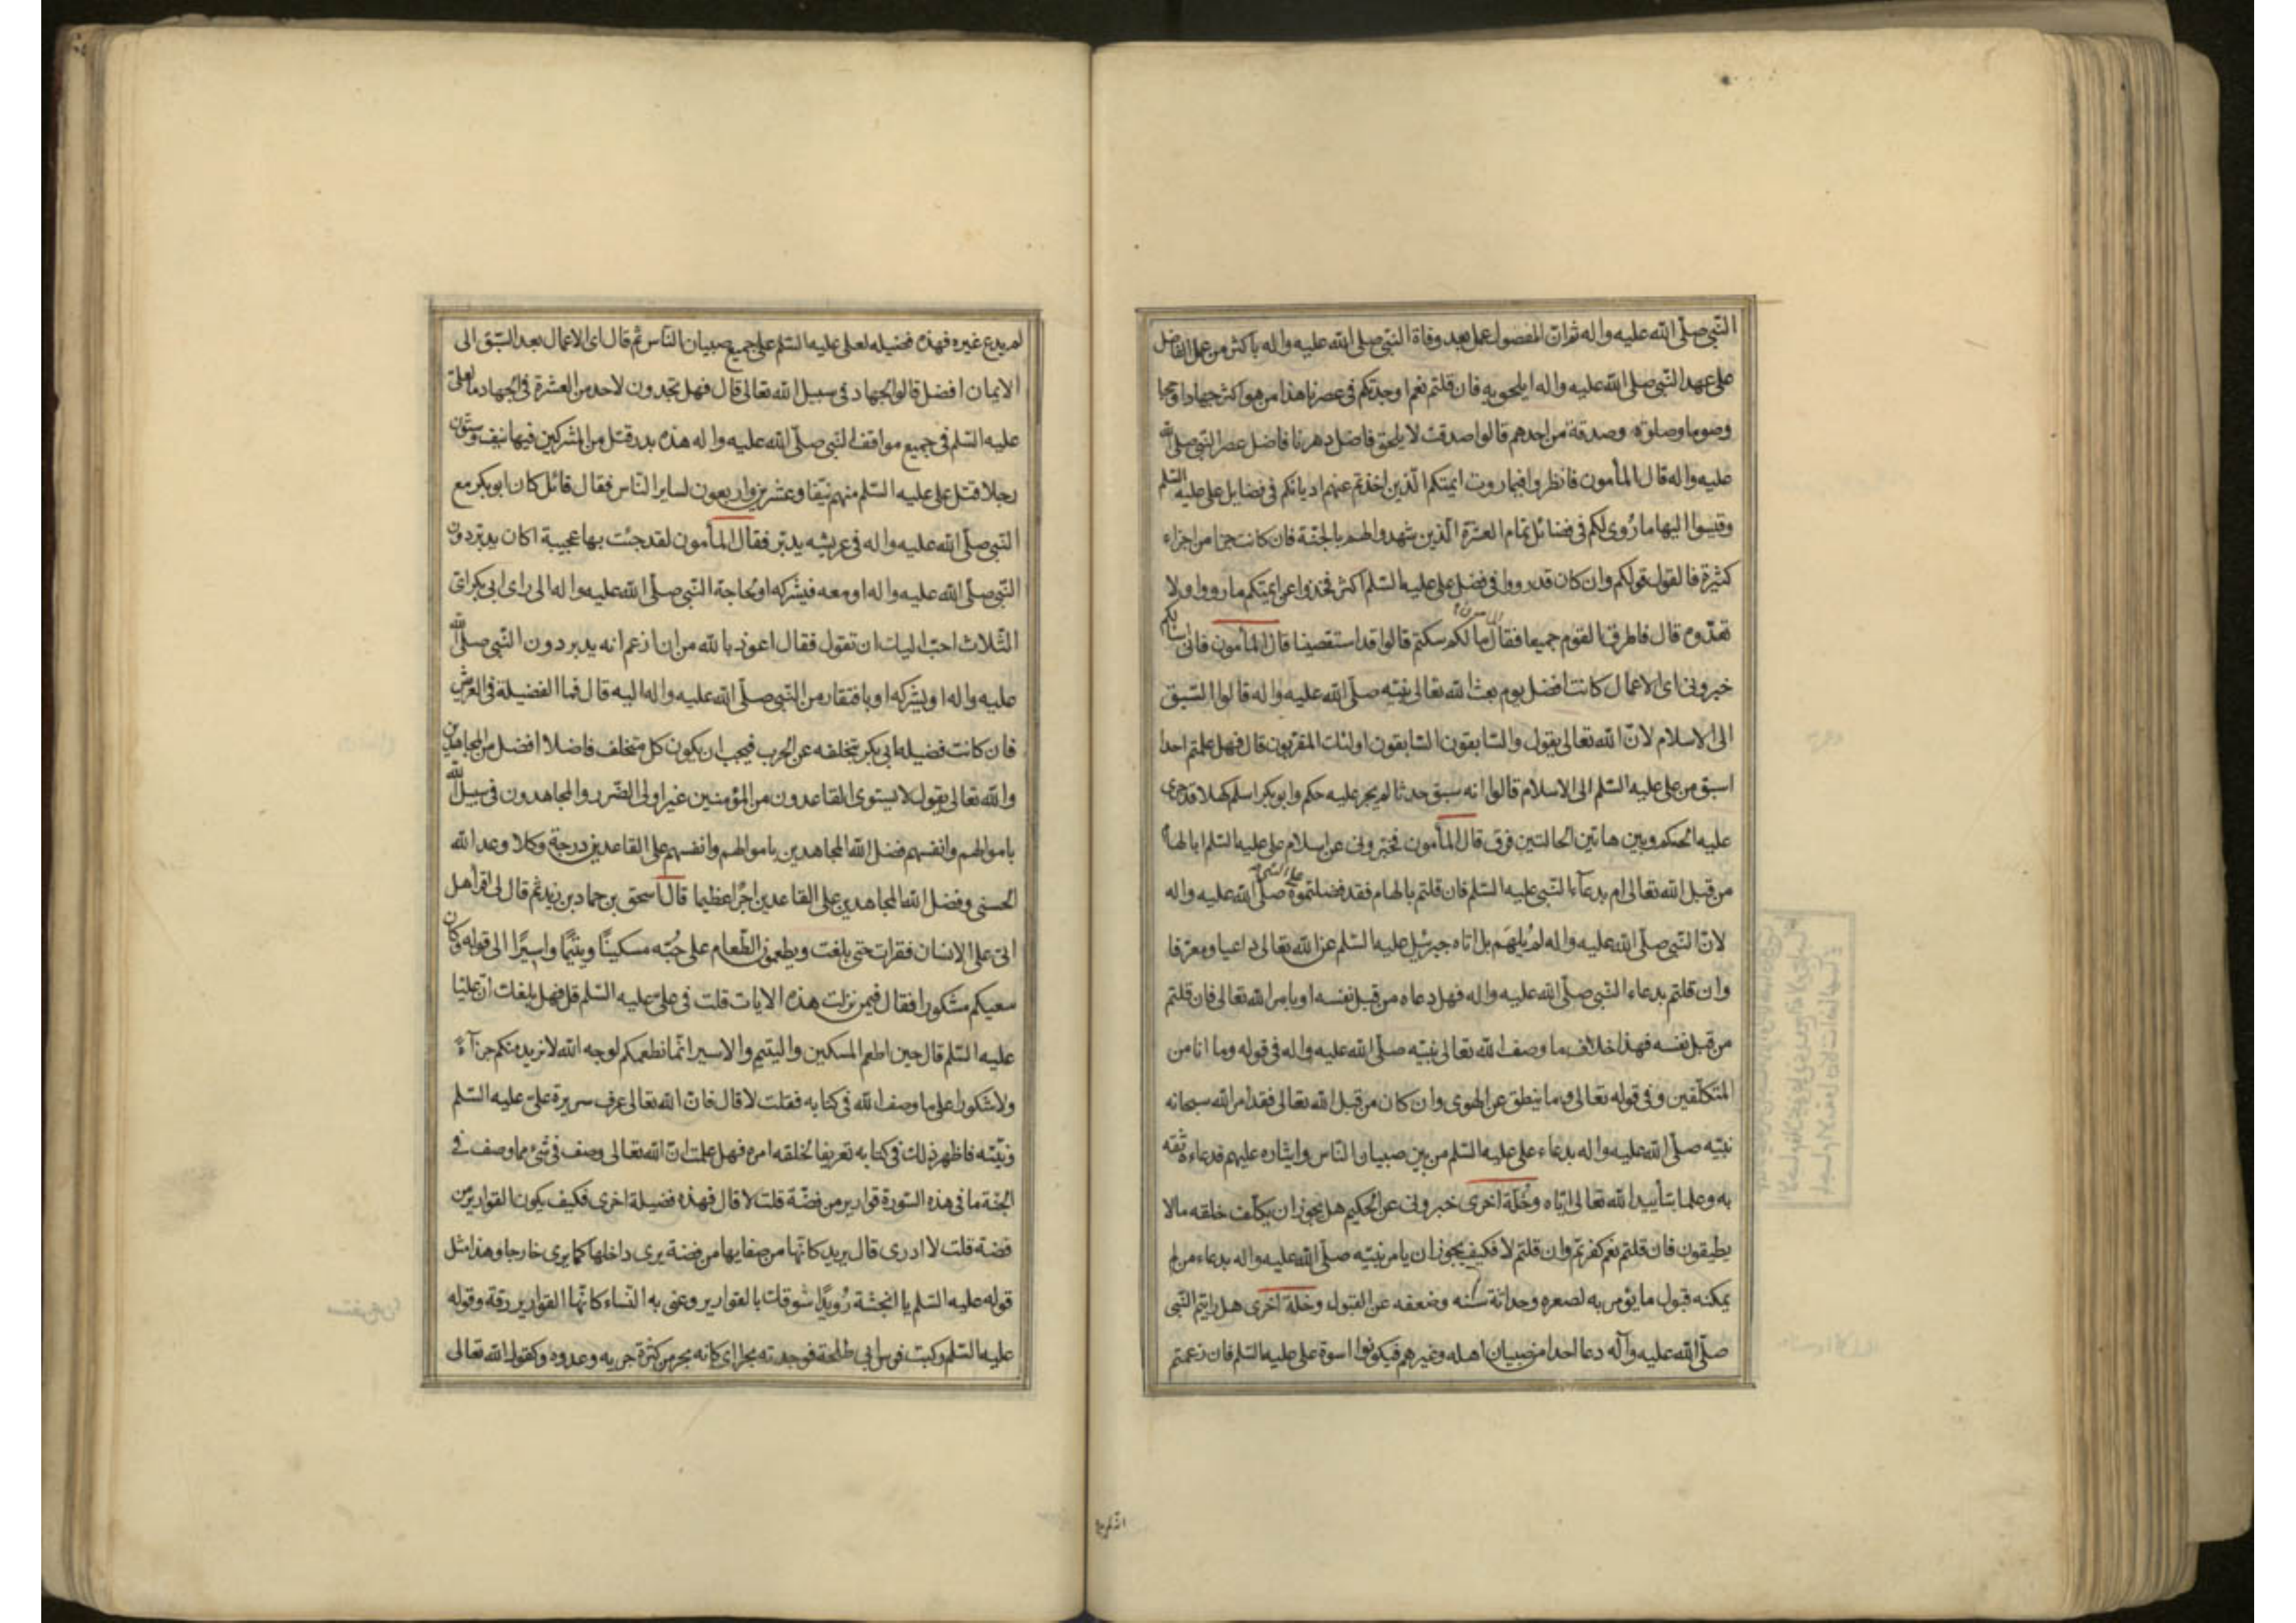 النّبى صلّى الله عليه واله ثم ان المفضول عمل بعد وفاة النبى صلى الله عليه واله باكثر من عمل الفاضل
على عهد النّبى صلى الله عليه واله ايلحق به فان قلتم نعم اوجدتكم فى عصرنا هذا من هو اكثر جهادا وحجا
وصوما وصلوة وصدقة من احدهم قالوا صدقت لا يلحق فاضل دهرنا فاضل عصر النبى صلى الله
عليه واله قال المأمون فانظروا فيما روت ايمتكم الّذين اخذتم عنهم اديانكم فى فضايل على عليه السّلم
وقيسوا اليها ما رُوى لكم فى فضائل تمام العشرة الّذين شهدوا لهم بالجنّة فان كانت جزا من اجزاء
كثيرة فالقول قولكم وان كان قد رووا فى فضل على عليه السّلم اكثر فخذوا عن ايمتكم ما رووا ولا
تعدّوه قال فاطرق القوم جميعا فقال المأمون ما لكم سكتم قالوا قد استقصينا قال المأمون فانى اسالكم
خبرونى اى الاعمال كانت افضل يوم بعث الله تعالى نبيّه صلّى الله عليه واله قالوا السّبق
الى الاسلام لانّ الله تعالى يقول والسّابقون السّابقون اولئك المقرّبون قال فهل علمتم احدا
اسبق من على عليه السّلم الى الاسلام قالوا انه سبق حدثا لم يجر عليه حكم وابو بكر اسلم كهلا قد جرى
عليه الحكم وبين هاتين الحالتين فرق قال المأمون فخبّرونى عن اسلام على عليه السّلم ابالهام
من قبل الله تعالى ام بدعآء النّبى عليه السّلم فان قلتم بالهام فقد فضلتموه على النبى صلّى الله عليه واله
لانّ النّبى صلّى الله عليه واله لم يُلهَم بل اتاه جبرئيل عليه السّلم عن الله تعالى داعيا ومعرّفا
وان قلتم بدعاء النّبى صلّى الله عليه واله فهل دعاه من قبل نفسه او بامر الله تعالى فان قلتم
من قبل نفسه فهذا خلاف ما وصف الله تعالى نبيّه صلّى الله عليه واله فى قوله وما انا من
المتكلّفين وفى قوله تعالى وما ينطق عن الهوى وان كان من قبل الله تعالى فقد امر الله سبحانه
نبيّه صلّى الله عليه واله بدعاء على عليه السّلم من بين صبيان النّاس وايثاره عليهم فدعاه ثقة
به وعلما بتأييد الله تعالى ايّاه وخُلّة اخرى خبرونى عن الحكيم هل يجوز ان يكلّف خلقه مالا
يطيقون فان قلتم نعم كفرتم وان قلتم لا فكيف يجوز ان يامر نبيّه صلّى الله عليه واله بدعاء من لم
يمكنه قبول ما يؤمر به لصغره وحداثة سنّه وضعفه عن القبول وخلة اخرى هل رايتم النّبى
صلّى الله عليه وآله دعا احدا من صبيان اهله وغيرهم فيكونوا اسوة على عليه السّلم فان زعمتم
انّه لم يدع
لم يدع غيره فهذه فضيله لعلى عليه السّلم على جميع صبيان النّاس ثم قال اى الاعمال بعد السّبق الى
الايمان افضل قالوا الجهاد فى سبيل الله تعالى قال فهل تجدون لاحد من العشرة فى الجهاد ما لعلىّ
عليه السّلم فى جميع مواقف النّبى صلّى الله عليه واله هذه بدر قتل من المشركين فيها نيف وستّون
رجلا قتل على عليه السّلم منهم نيّفا وعشرين واربعون لساير النّاس فقال قائل كان ابو بكر مع
النبى صلّى الله عليه واله فى عريشه يدبّر فقال المأمون لقد جئت بها عجيبة اكان يدبّر دون
النّبى صلّى الله عليه واله او معه فيشركه او لحاجة النّبى صلّى الله عليه واله الى راى ابى بكر اىّ
الثّلاث احبّ اليك ان تقول فقال اعوذ بالله من ان ازعم انه يدبر دون النّبى صلّى الله
عليه واله او يشركه او بافتقار من النّبى صلّى الله عليه واله اليه قال فما الفضيلة فى العريش
فان كانت فضيلة ابى بكر بتخلفه عن الحرب فيجب ان يكون كل متخلف فاضلا افضل من المجاهدين
والله تعالى يقول لا يستوى القاعدون من المؤمنين غير اولى الضّرر والمجاهدون فى سبيل الله
باموالهم وانفسهم فضل الله المجاهدين باموالهم وانفسهم على القاعدين درجة وكلا وعد الله
الحسنى وفضل الله المجاهدين على القاعدين اجرًا عظيما قال اسحق بن حماد بن زيد ثم قال لى اقرأ هل
اتى على الانسان فقرات حتى بلغت ويطعمون الطّعام على حُبّه مسكينًا ويتيمًا واسيرًا الى قوله وكان
سعيكم مشكورا فقال فيمن نزلت هذه الايات قلت فى علىّ عليه السّلم قل فهل بلغك انّ عليّا
عليه السّلم قال حين اطعم المسكين واليتيم والاسير انّما نطعمكم لوجه الله لا نريد منكم جزآءً
ولا شكورا على ما وصف الله فى كتابه فقلت لا قال فانّ الله تعالى عرف سريرة علىّ عليه السّلم
ونيّته فاظهر ذلك فى كتابه تعريفا لخلقه امره فهل علمت انّ الله تعالى وصف فى شىء مما وصف فى
الجنّة ما فى هذه السّورة قوارير من فضّة قلت لا قال فهذه فضيلة اخرى فكيف يكون القوارير من
فضة قلت لا ادرى قال يريد كانّها من صفايها من فضة يرى داخلها كما يرى خارجا وهذا مثل
قوله عليه السّلم يا انجشة رُويدًا شوقك بالقوارير وعنى به النّساء كانّها القوارير رقة وقوله
عليه السّلم ركبت فرس ابى طلحة فوجدته بحرا اى كانه بحر من كثرة جريه وعدوه وكقول الله تعالى